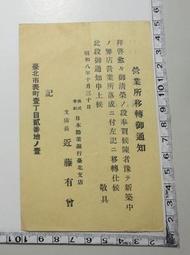 営業所移轉御通知
拝啓愈々御清榮ノ段奉賀候陳者豫テ新築中
ノ弊店營業所落成ニ付左記ニ移轉仕候
此段御通知申上候
敬具
昭和八年十月三十日
株式會社
日本勸業銀行臺北支店
支店長
近藤有曾
記
臺北市表町壹丁目貳番地ノ壹